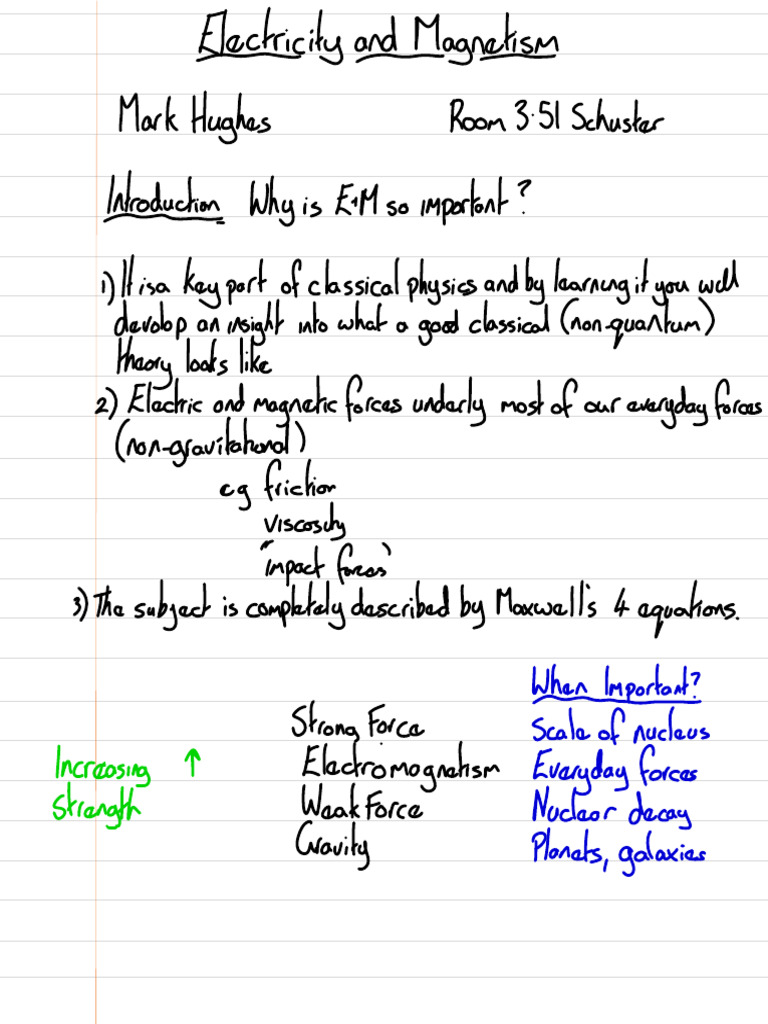 Electricity and Magnetism
Mark Hughes Room 3.51 Schuster
Introduction Why is E+M so important?
1) It is a key part of classical physics and by learning it you will
devolop an insight into what a good classical (non-quantum)
theory looks like
2) Electric and magnetic forces underly most of our everyday forces
(non-gravitational)
eg friction
viscosity
"impact forces"
3) The subject is completely described by Maxwell's 4 equations.
When Important?
Strong Force Scale of nucleus
Increasing ↑ Electromagnetism Everyday forces
Strength Weak Force Nuclear decay
Gravity Planets, galaxies